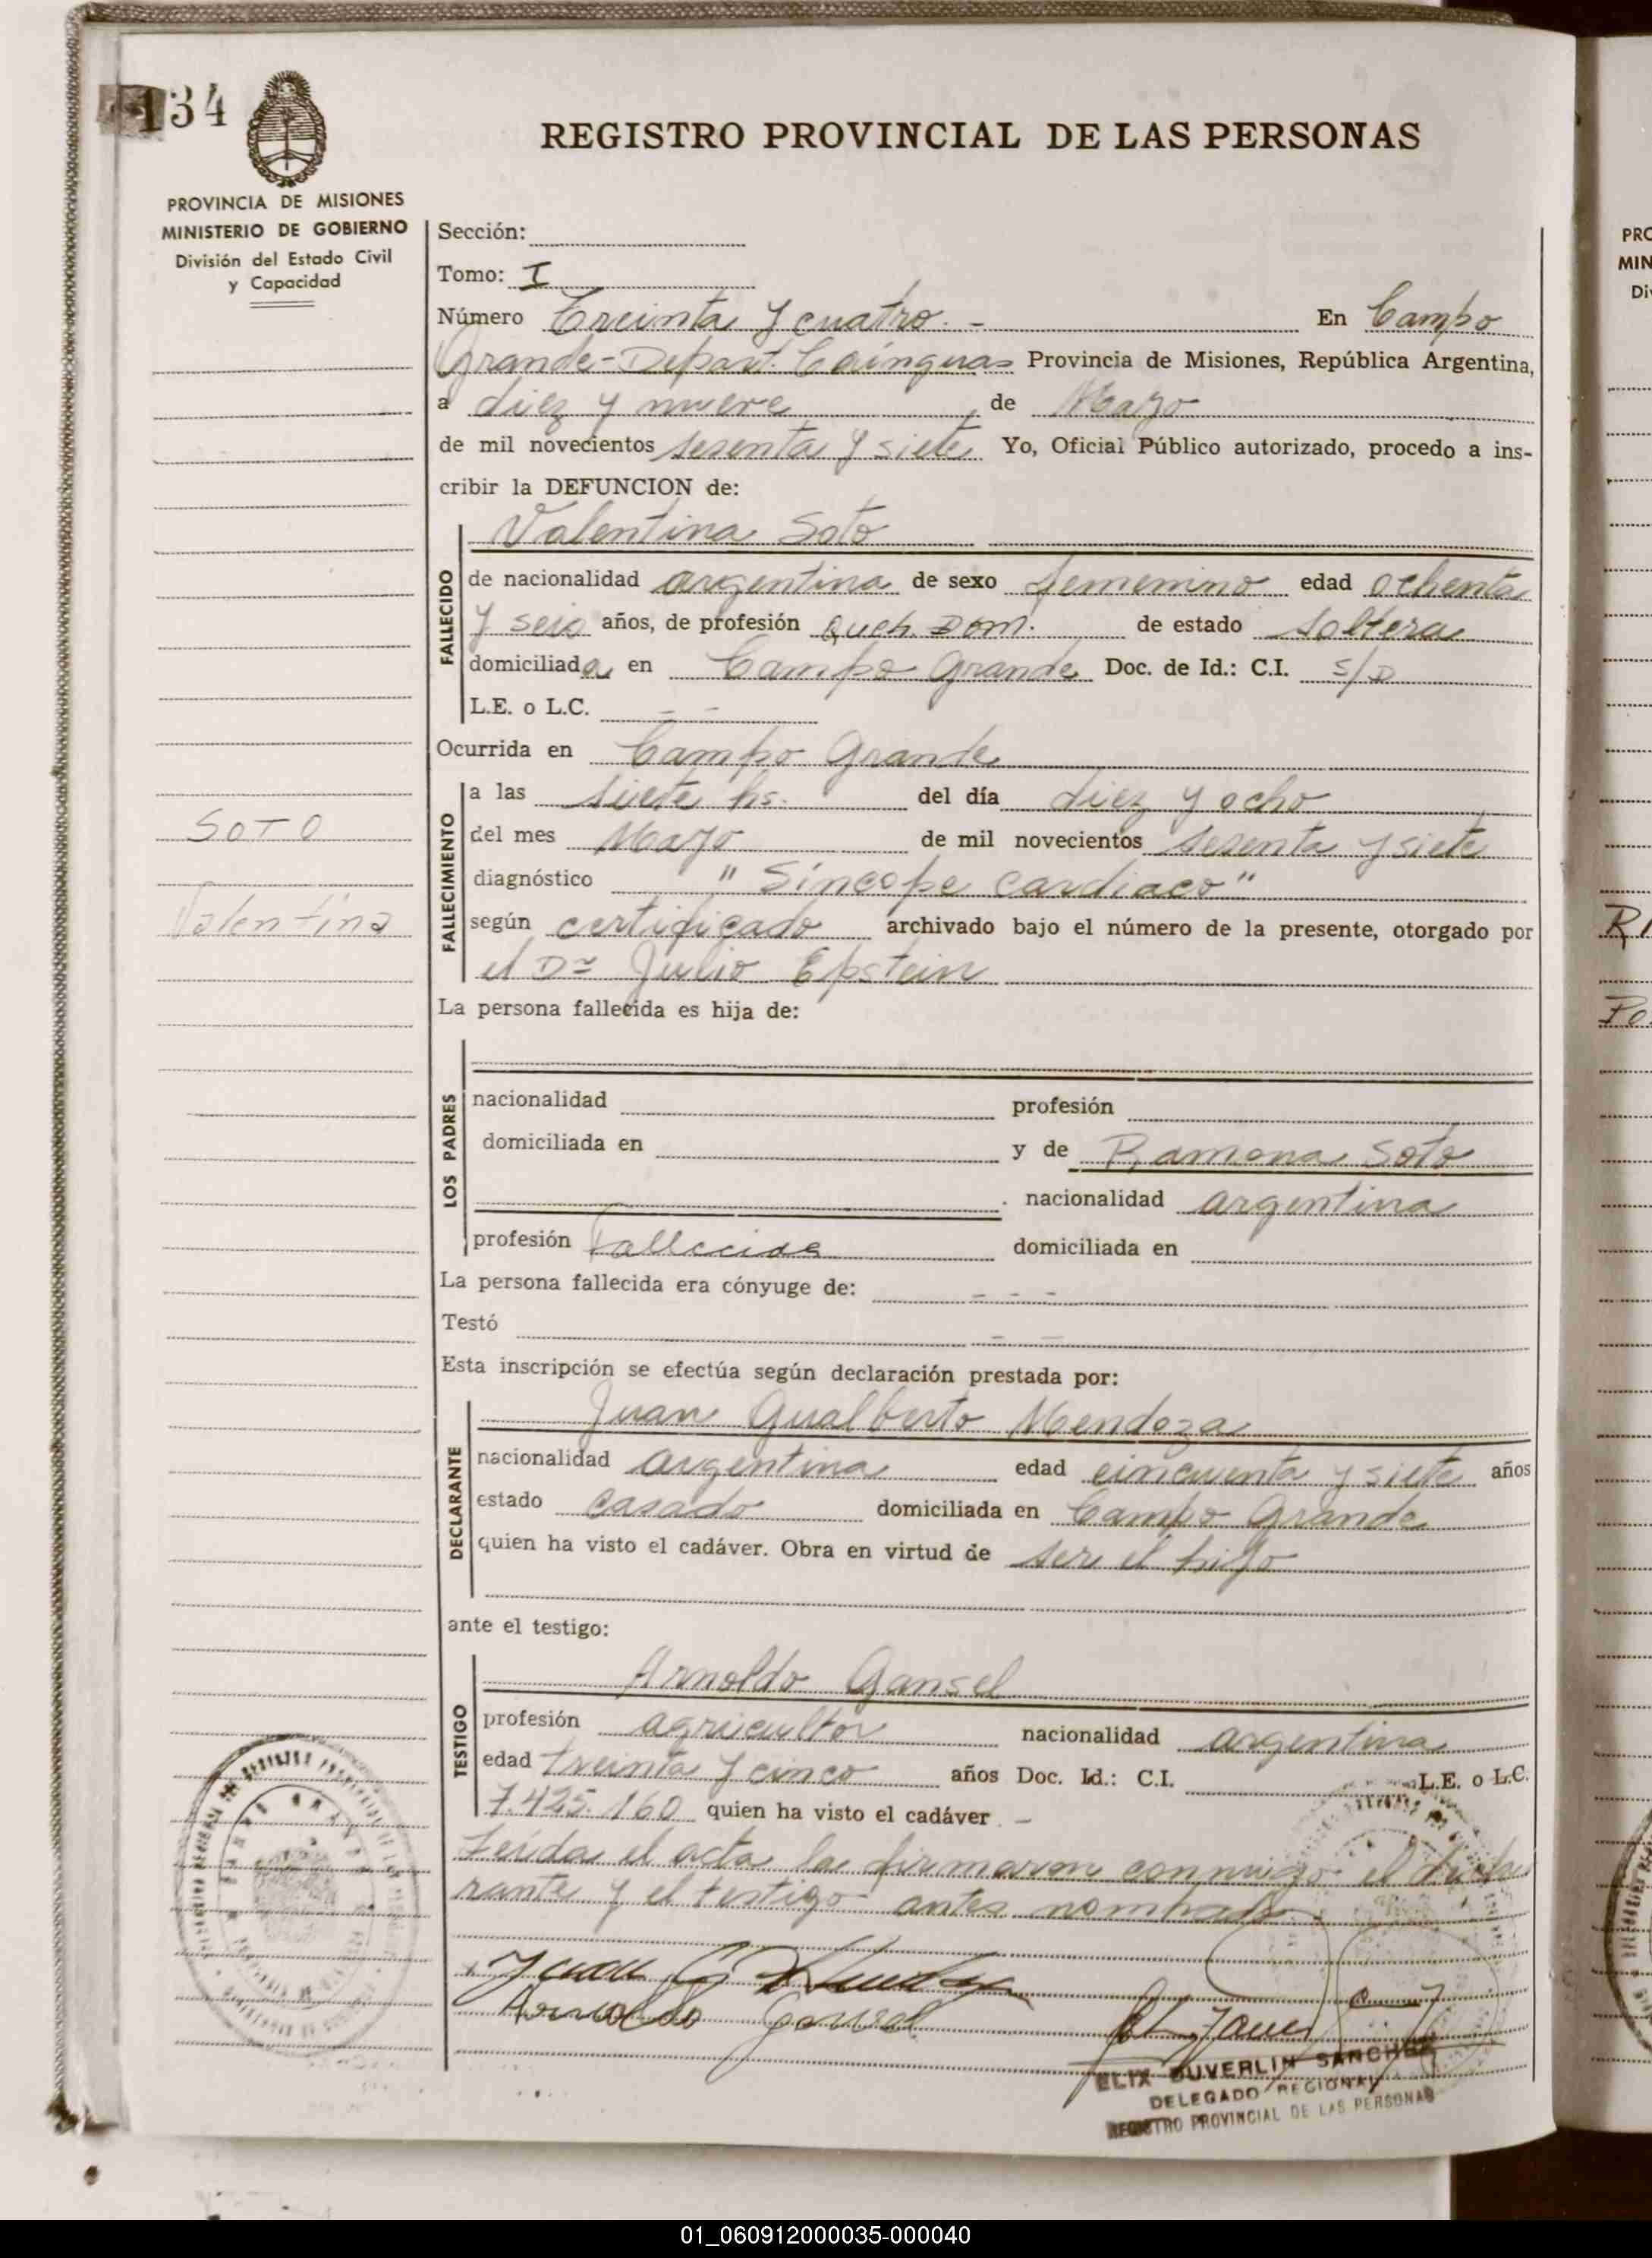 134
REGISTRO PROVINCIAL DE LAS PERSONAS
PROVINCIA DE MISIONES
MINISTERIO DE GOBIERNO
División del Estado Civil
y Capacidad
Sección:
Tomo: I
Número Treinta y cuatro. - En Campo
Grande - Depart. Cainguas Provincia de Misiones, República Argentina,
a diez y nueve de Mayo
de mil novecientos sesenta y siete Yo, Oficial Público autorizado, procedo a ins-
cribir la DEFUNCION de:
Valentina Soto
FALLECIDO
de nacionalidad argentina de sexo femenino edad ochenta
y seis años, de profesión Queh. Dom. de estado soltera
domiciliada en Campo Grande Doc. de Id.: C.I. S/D
L.E. o L.C. - -
Ocurrida en Campo Grande
FALLECIMIENTO
a las siete hs. del día diez y ocho
del mes Mayo de mil novecientos sesenta y siete
diagnóstico "Síncope cardiaco"
según certificado archivado bajo el número de la presente, otorgado por
el Dr Julio Epstein
SOTO
Valentina
La persona fallecida es hija de:
LOS PADRES
nacionalidad profesión
domiciliada en y de Ramona Soto
nacionalidad argentina
profesión Fallecida domiciliada en
La persona fallecida era cónyuge de: - - -
Testó - -
Esta inscripción se efectúa según declaración prestada por:
Juan Gualberto Mendoza
DECLARANTE
nacionalidad argentina edad cincuenta y siete años
estado casado domiciliada en Campo Grande
quien ha visto el cadáver. Obra en virtud de ser el hijo
ante el testigo:
Arnoldo Gansel
TESTIGO
profesión agricultor nacionalidad argentina
edad treinta y cinco años Doc. Id.: C.I. L.E. o L.C.
7.425.160 quien ha visto el cadáver. -
Leída el acta la firmaron conmigo el decla
rante y el testigo antes nombrado
Juan G Mendoza
Arnoldo Gansel
ELIX DUVERLIN SANCHEZ
DELEGADO REGIONAL
REGISTRO PROVINCIAL DE LAS PERSONAS
01_060912000035-000040